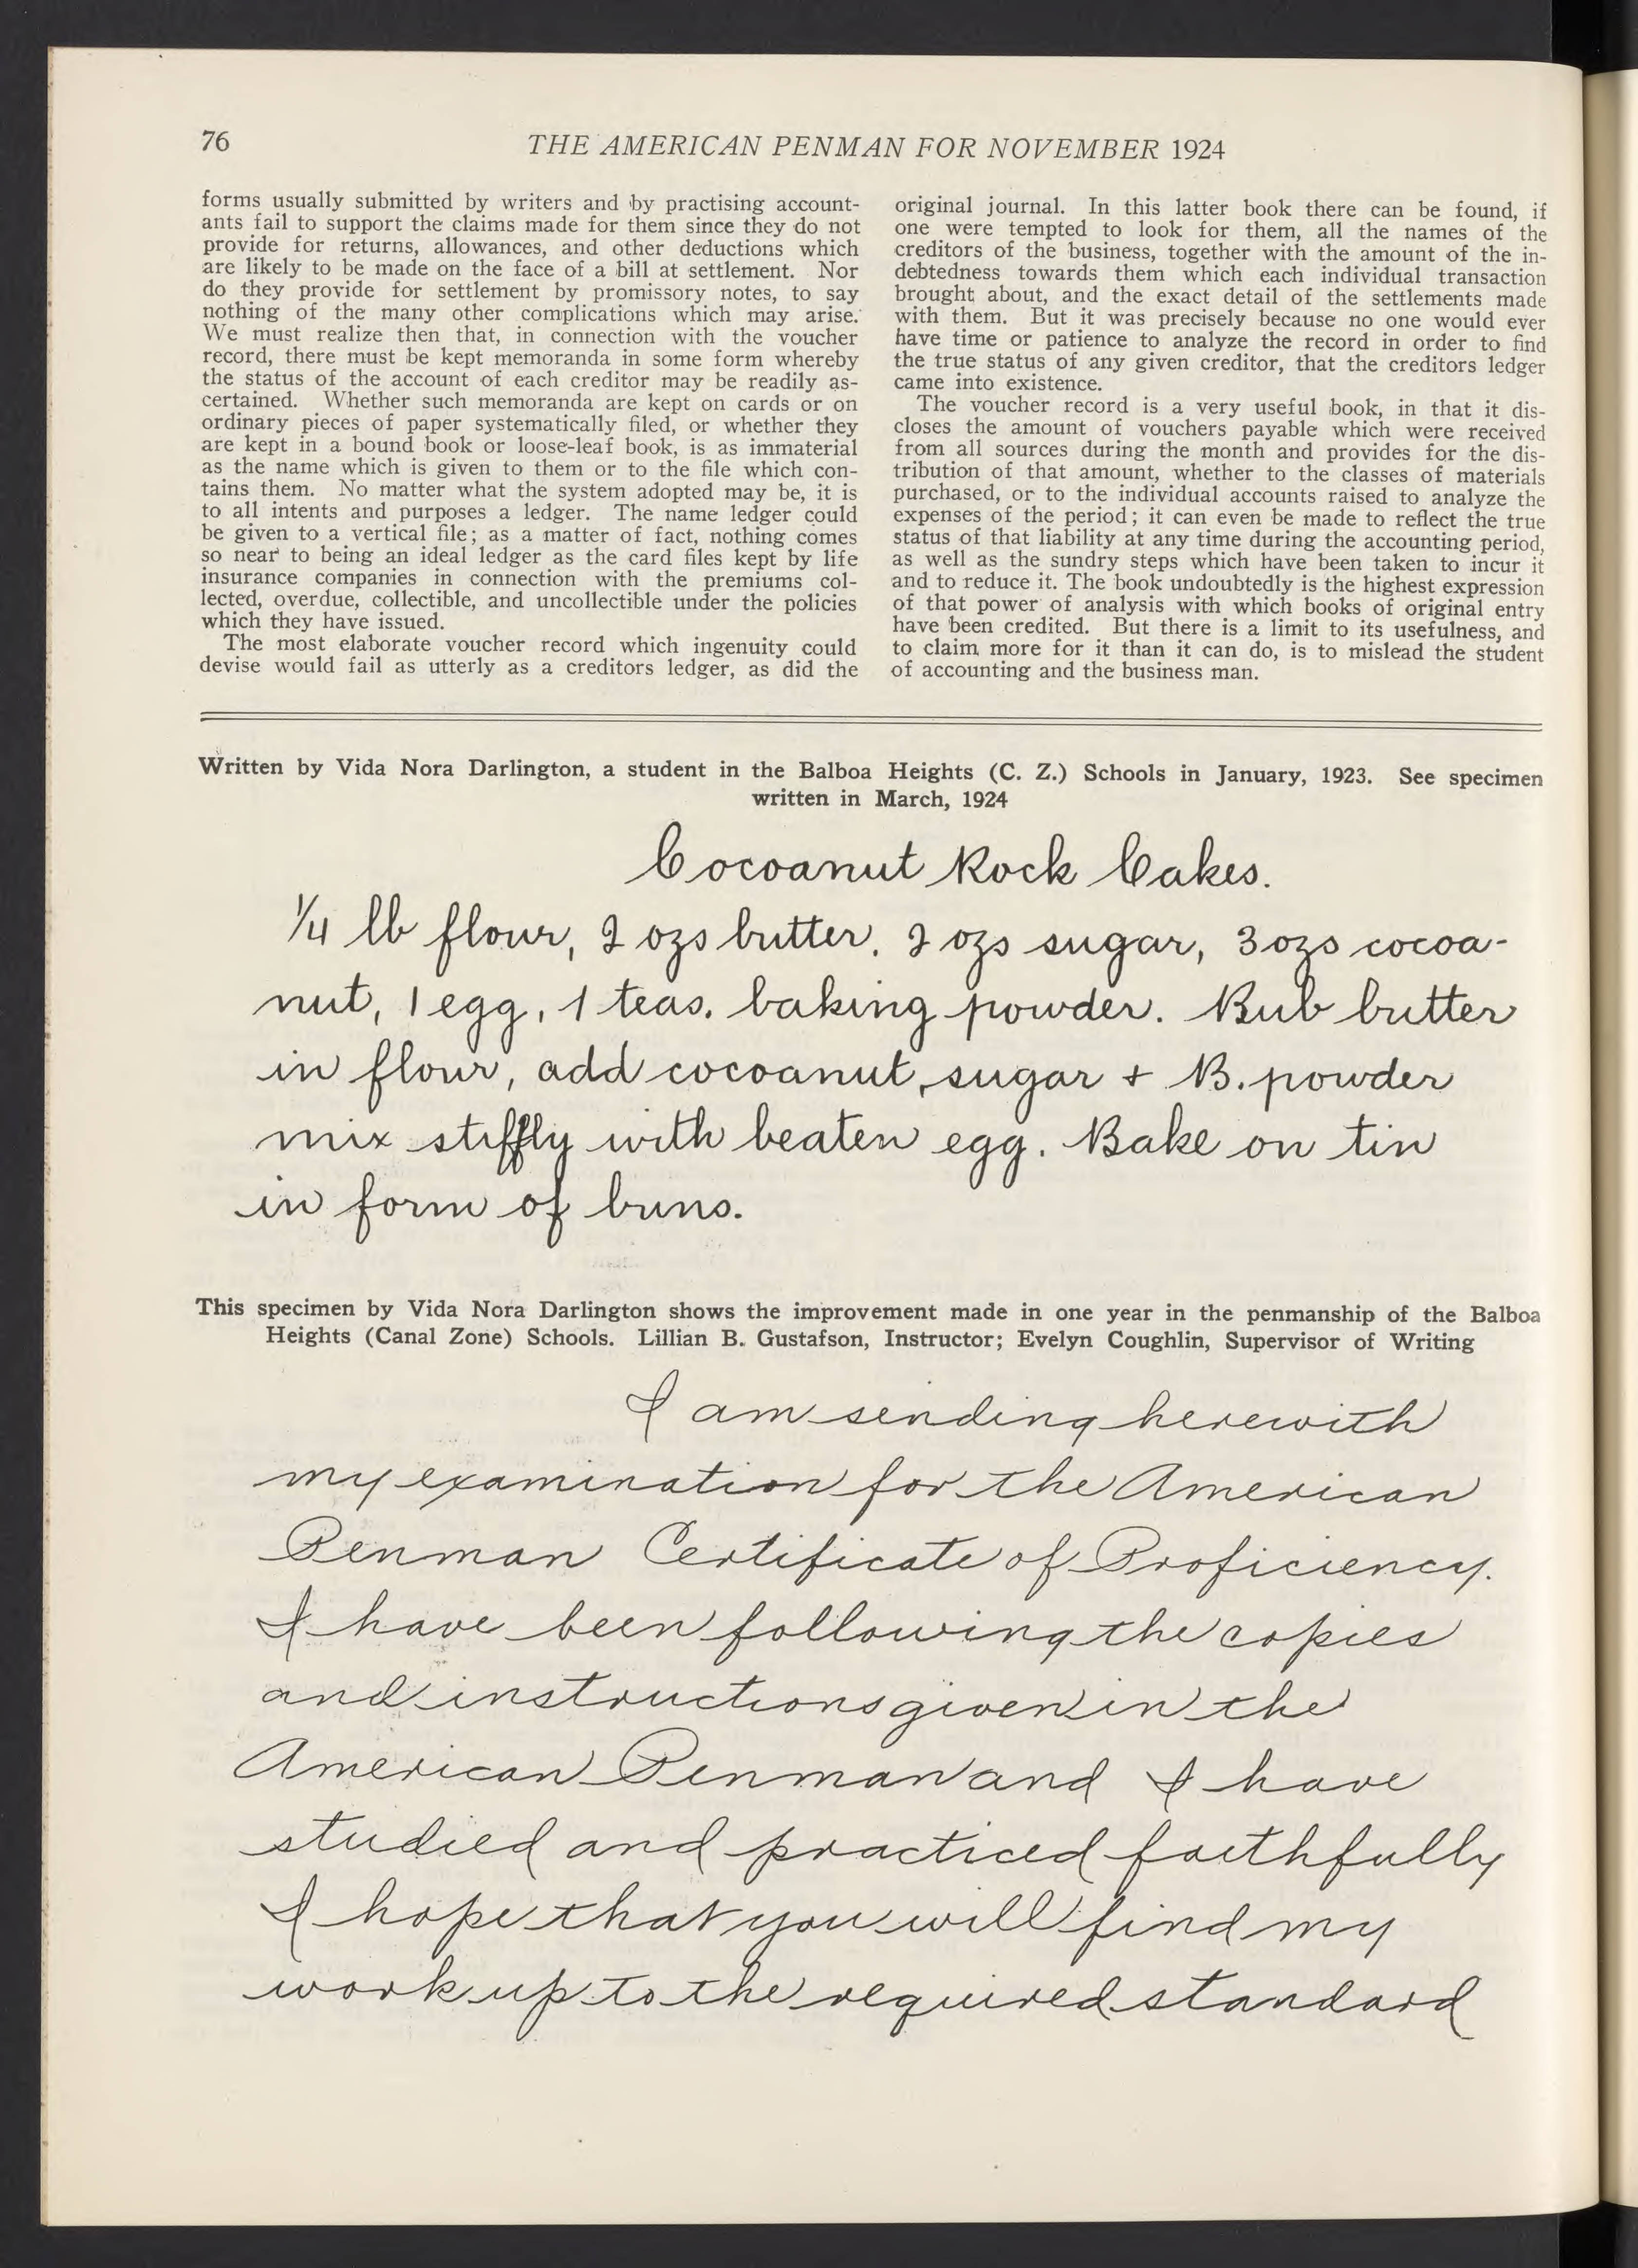 76
THE AMERICAN PENMAN FOR NOVEMBER 1924
forms usually submitted by writers and by practising account-
ants fail to support the claims made for them since they do not
provide for returns, allowances, and other deductions which
are likely to be made on the face of a bill at settlement. Nor
do they provide for settlement by promissory notes, to say
nothing of the many other complications which may arise.
We must realize then that, in connection with the voucher
record, there must be kept memoranda in some form whereby
the status of the account of each creditor may be readily as-
certained. Whether such memoranda are kept on cards or on
ordinary pieces of paper systematically filed, or whether they
are kept in a bound book or loose-leaf book, is as immaterial
as the name which is given to them or to the file which con-
tains them. No matter what the system adopted may be, it is
to all intents and purposes a ledger. The name ledger could
be given to a vertical file; as a matter of fact, nothing comes
so near to being an ideal ledger as the card files kept by life
insurance companies in connection with the premiums col-
lected, overdue, collectible, and uncollectible under the policies
which they have issued.
The most elaborate voucher record which ingenuity could
devise would fail as utterly as a creditors ledger, as did the
original journal. In this latter book there can be found, if
one were tempted to look for them, all the names of the
creditors of the business, together with the amount of the in-
debtedness towards them which each individual transaction
brought about, and the exact detail of the settlements made
with them. But it was precisely because no one would ever
have time or patience to analyze the record in order to find
the true status of any given creditor, that the creditors ledger
came into existence.
The voucher record is a very useful book, in that it dis-
closes the amount of vouchers payable which were received
from all sources during the month and provides for the dis-
tribution of that amount, whether to the classes of materials
purchased, or to the individual accounts raised to analyze the
expenses of the period; it can even be made to reflect the true
status of that liability at any time during the accounting period,
as well as the sundry steps which have been taken to incur it
and to reduce it. The book undoubtedly is the highest expression
of that power of analysis with which books of original entry
have been credited. But there is a limit to its usefulness, and
to claim more for it than it can do, is to mislead the student
of accounting and the business man.
Written by Vida Nora Darlington, a student in the Balboa Heights (C. Z.) Schools in January, 1923. See specimen
written in March, 1924
Cocoanut Rock Cakes.
1/4 lb flour, 2 ozs butter, 2 ozs sugar, 3 ozs cocoa-
nut, 1 egg, 1 teas. baking powder. Rub butter
in flour, add cocoanut, sugar + B. powder
mix stiffly with beaten egg. Bake on tin
in form of buns.
This specimen by Vida Nora Darlington shows the improvement made in one year in the penmanship of the Balboa
Heights (Canal Zone) Schools. Lillian B. Gustafson, Instructor; Evelyn Coughlin, Supervisor of Writing
I am sending herewith
my examination for the American
Penman Certificate of Proficiency.
I have been following the copies
and instructions given in the
American Penman and I have
studied and practiced faithfully
I hope that you will find my
work up to the required standard